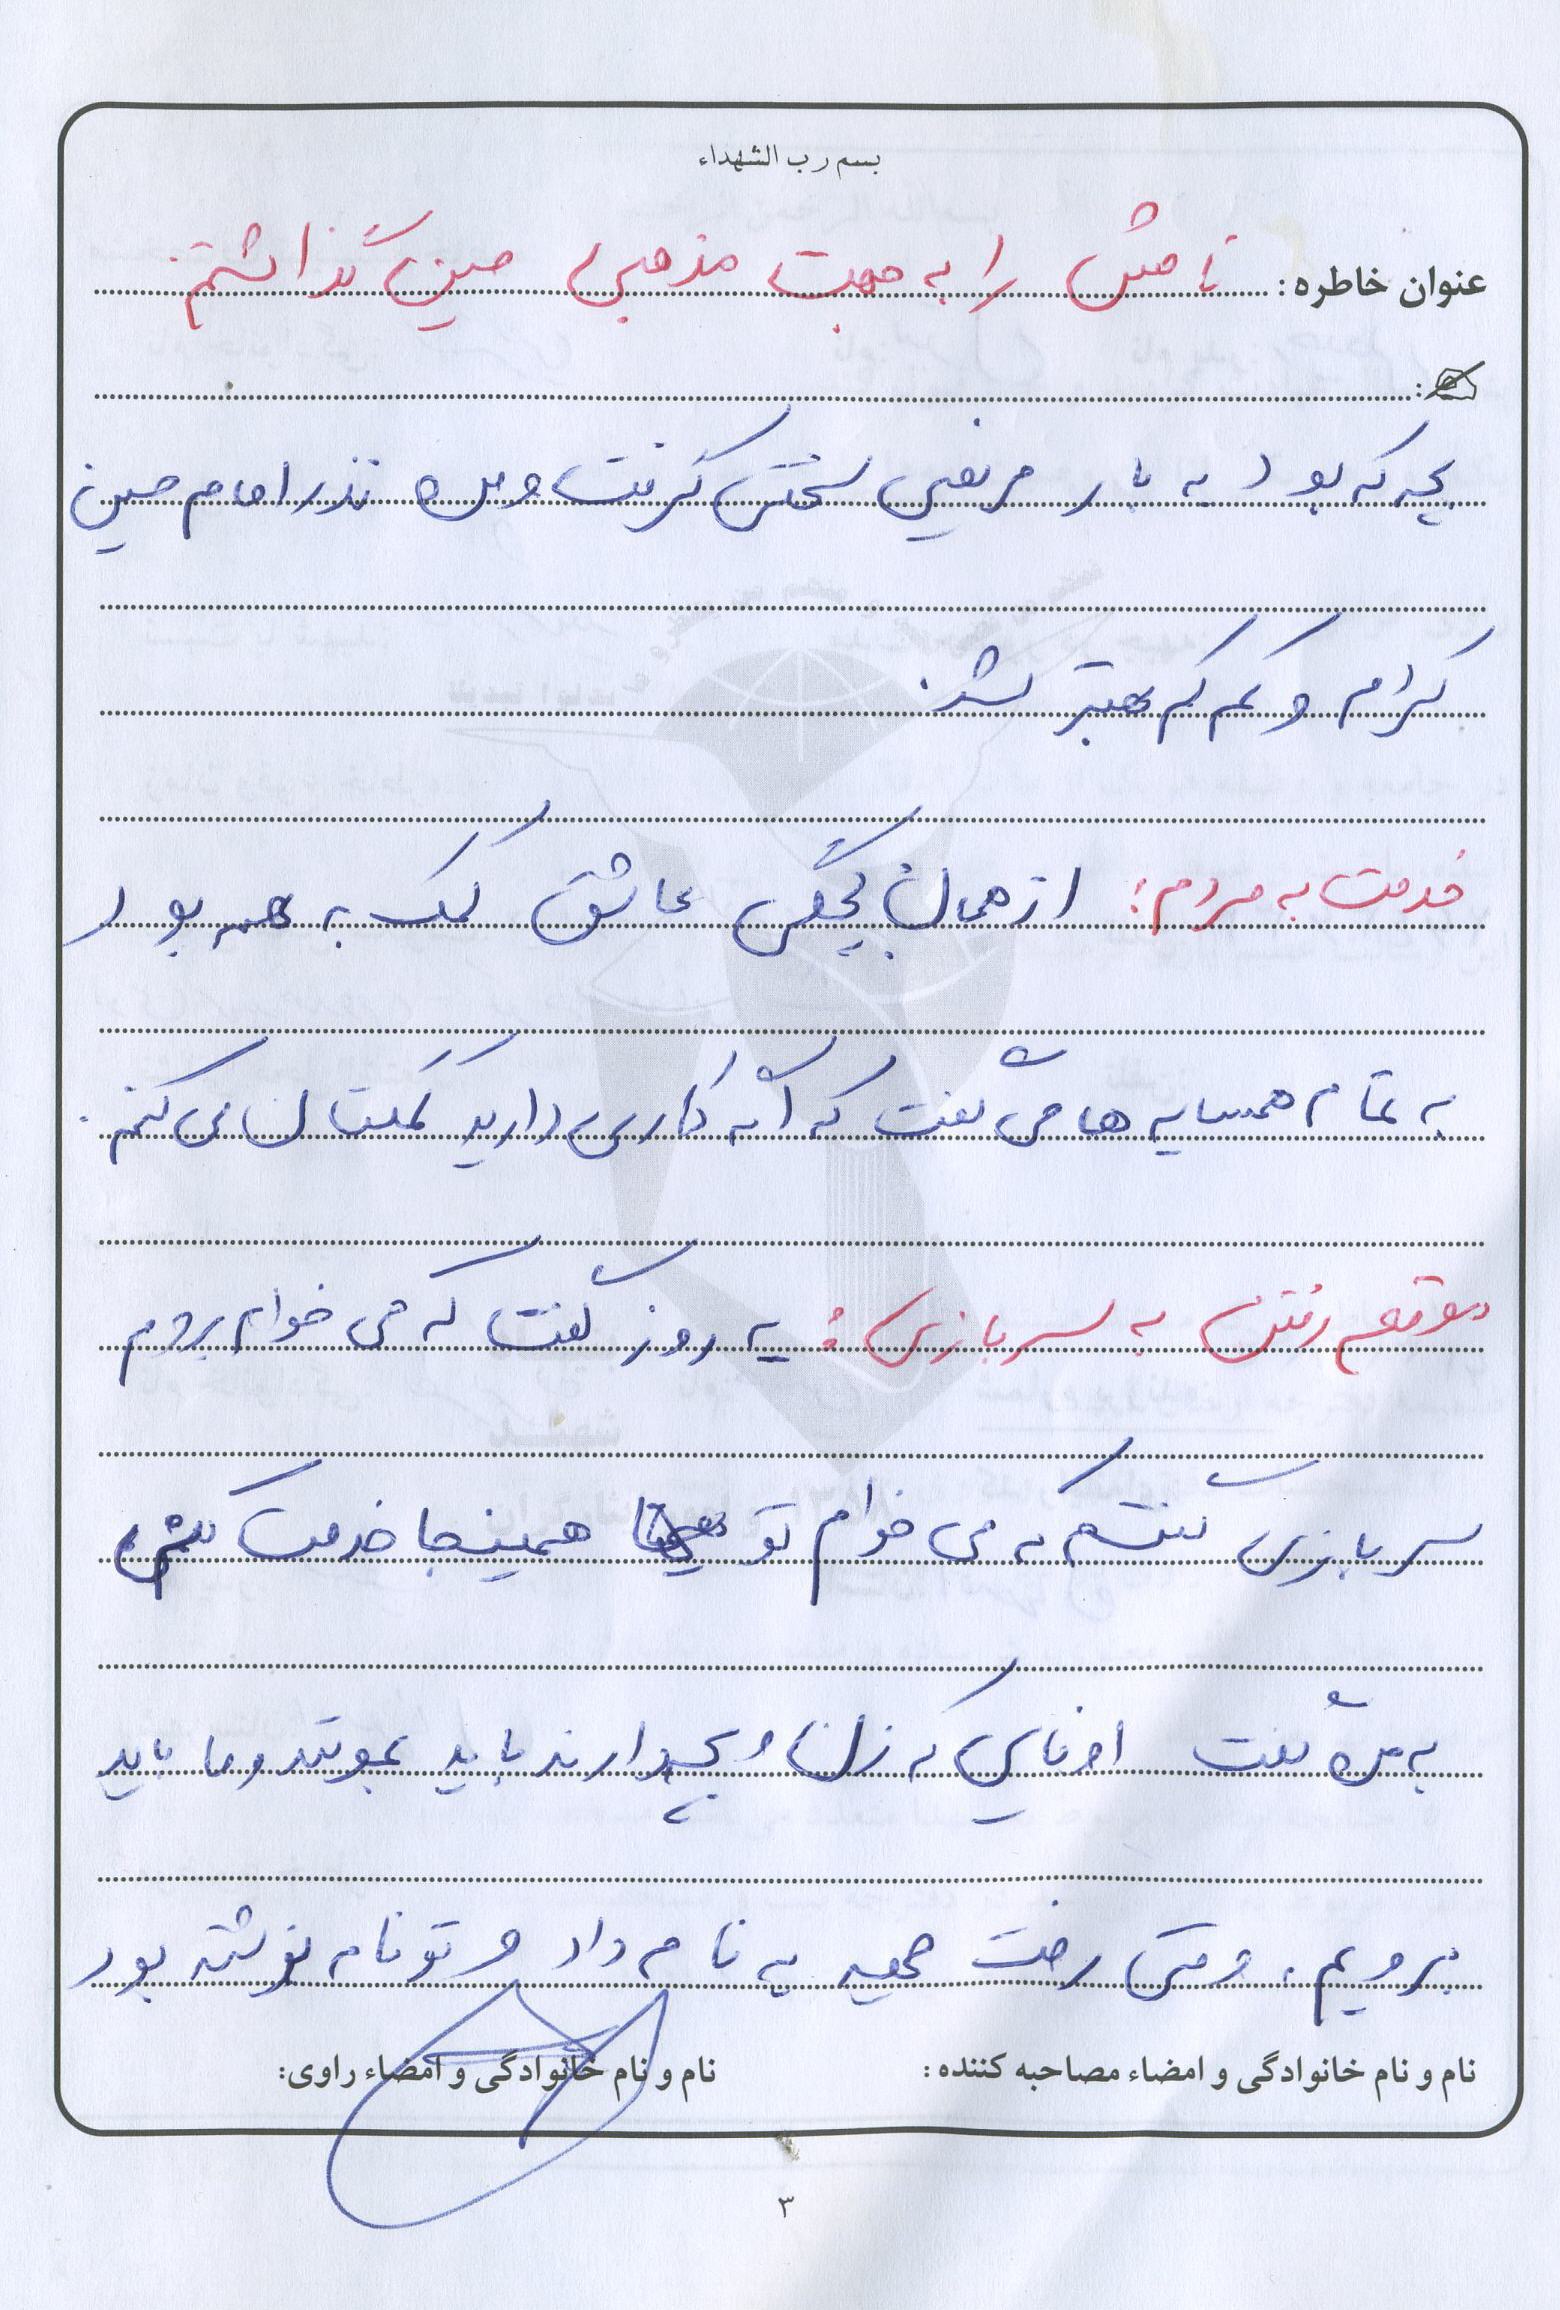 بسم رب الشهداء
عنوان خاطره: نامش را به جهت مذهبی حسین گذاشتم.
بچه که بود یه بار مریضی سختی گرفت و من نذر امام حسین
کردم و کم کم بهتر شد.
خدمت به مردم: از همان بچگی عاشق کمک به همه بود
به تمام همسایه ها می گفت که اگه کاری دارید کمکتان می کنم.
موقع رفتن به سربازی: یه روز گفت که می خوام بروم
سربازی گفتم که می خوام تو همینجا خدمت کنی
به من گفت اونایی که زن و بچه دارند باید بمونند و ما باید
برویم. وقتی رفت جبهه یه نامه داد و تو نامه نوشته بود
نام و نام خانوادگی و امضاء مصاحبه کننده: نام و نام خانوادگی و امضاء راوی:
۳